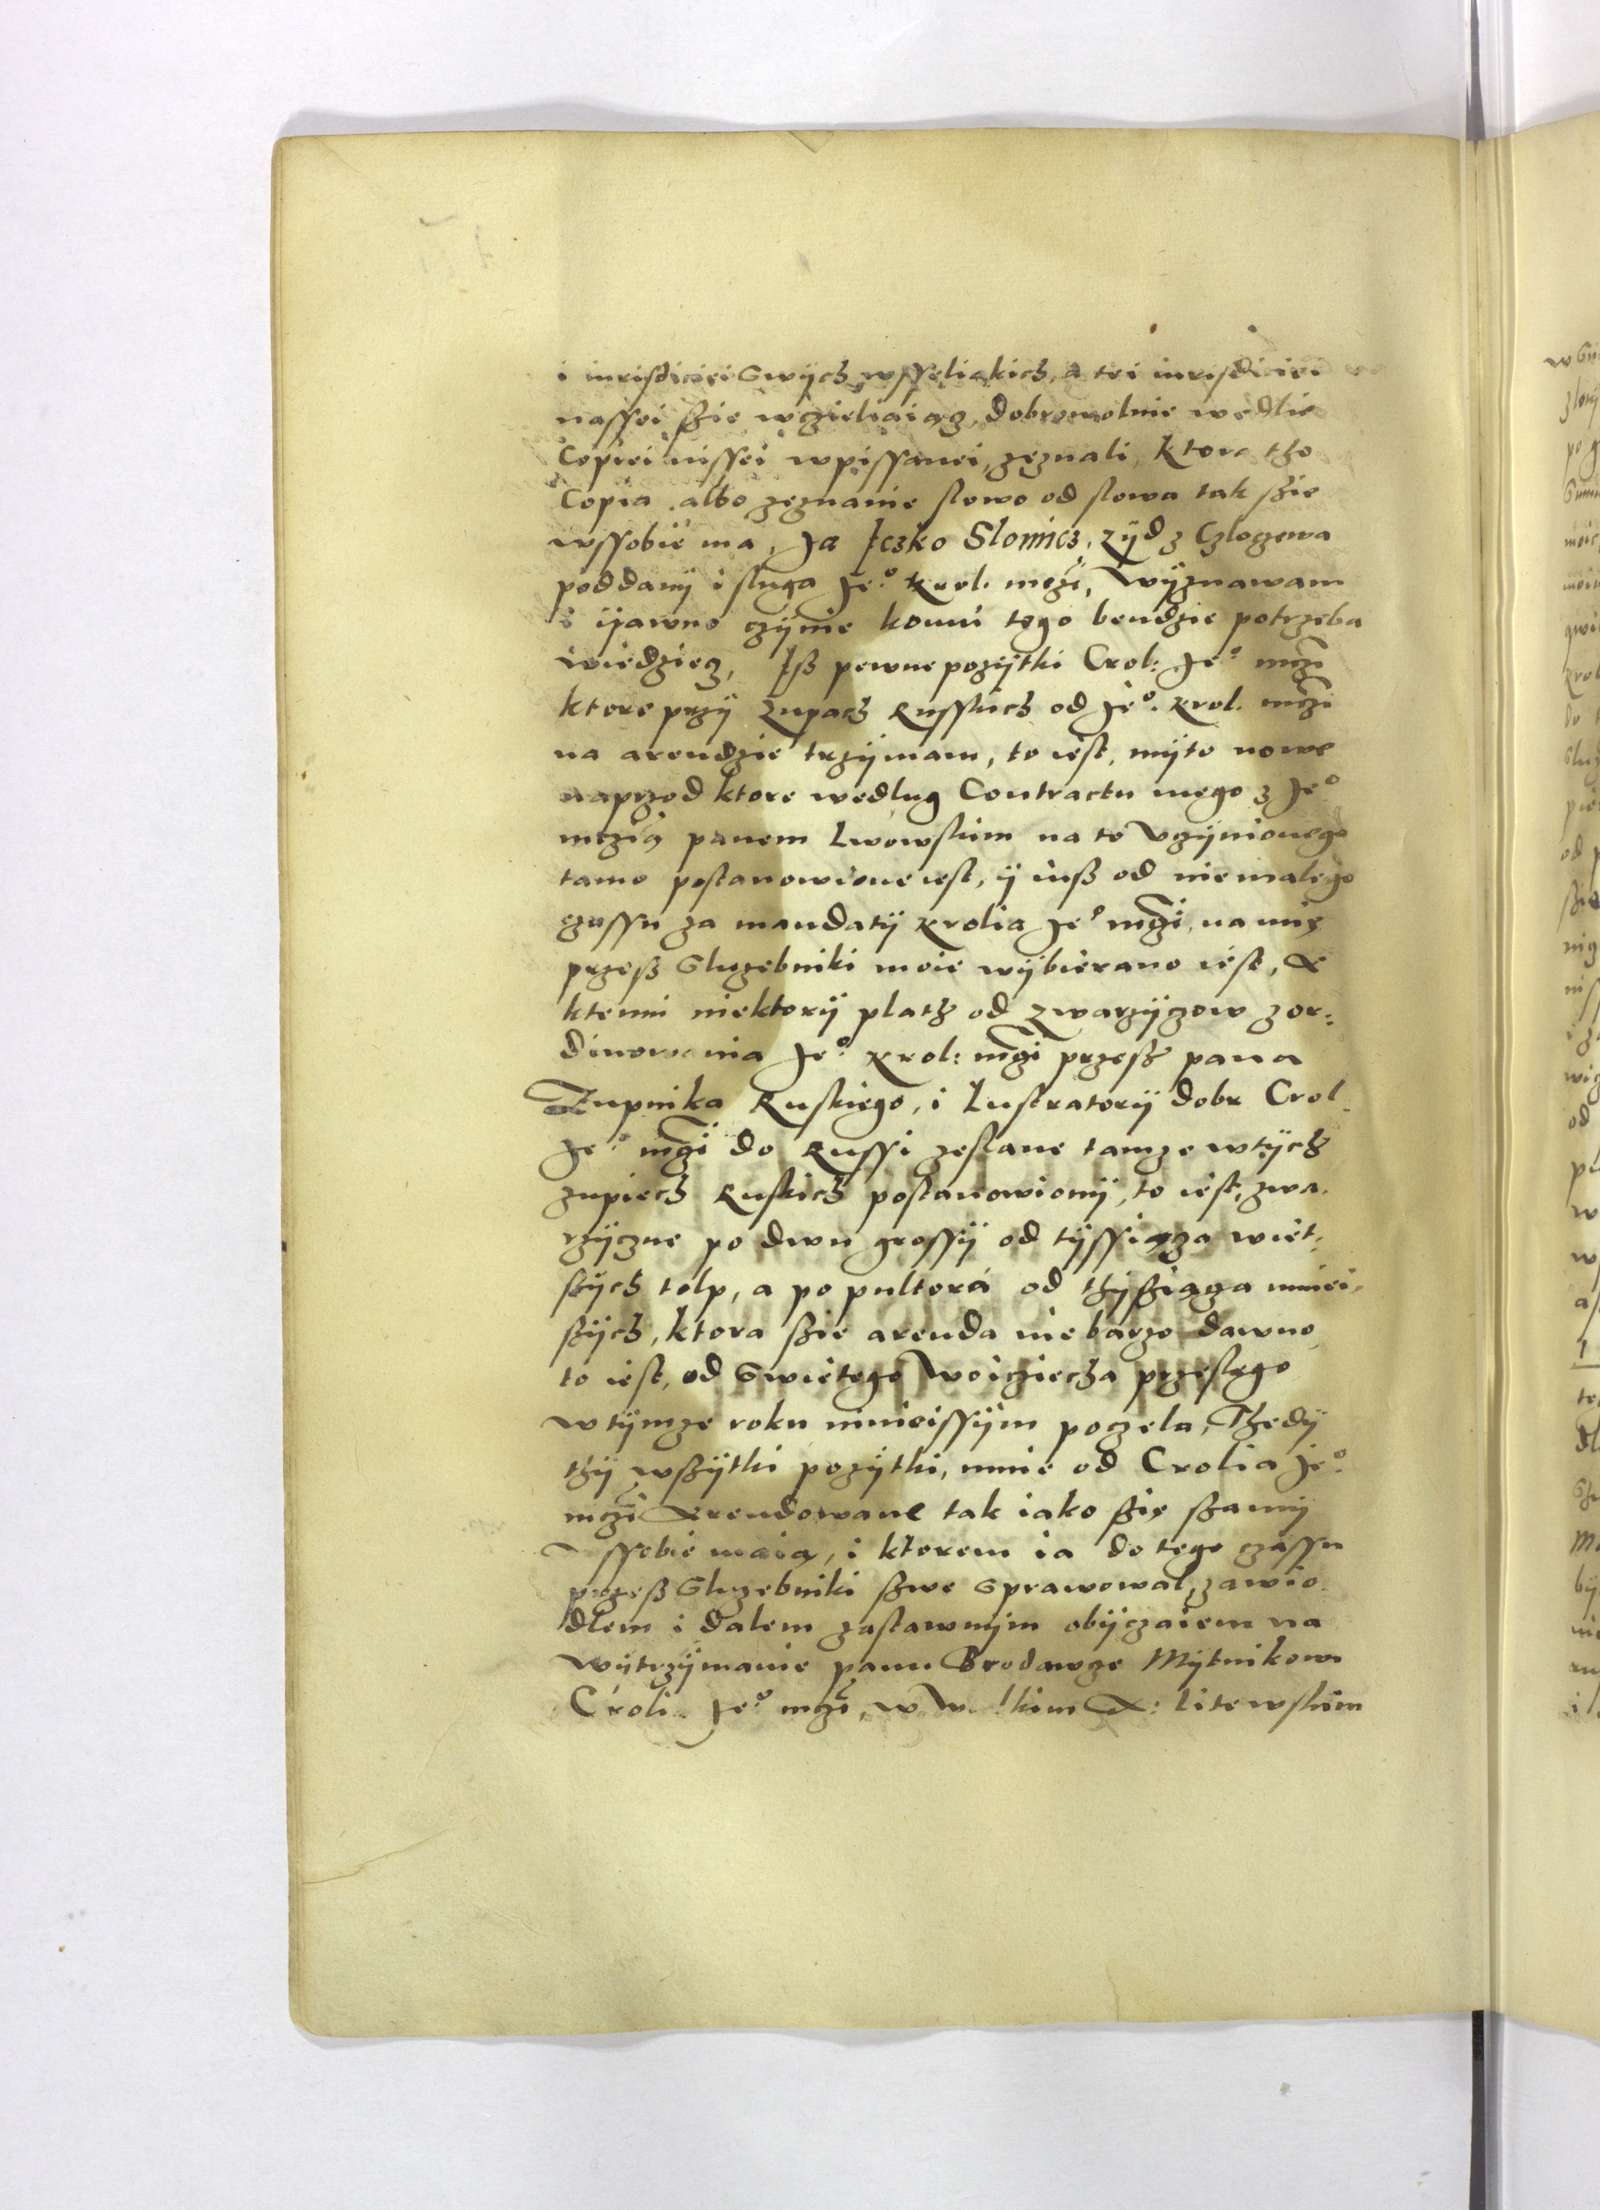 i iurisdiciei Swÿch wsseliakich, a tei iurisdiciei
nassei szie wczieliaiącz, dobrowolnie wedlie
Copiei nissei wpissanei, zeznali, Ktora tho
Copia albo zeznanie slowo od slowa tak szie
wssobie ma, Ja Iczko Slomicz, Zÿd z Czloczewa
poddanÿ i sluga Jeº Krol. mczi, Wÿznawam
i ÿawno czÿnie komu tego bendzie potrzeba
wiedziecz, Isz pewne pozÿtki Crol: Jeº mczi
ktore przÿ Zupach Russkich od Jeº. Krol. mczi
na arendzie trzÿmam, to iest, mÿto nowe
naprzod ktore wedlug Contractu mego z Jeº
mczią panem Lwowskim na to Vczÿnionego
tamo postanowione iest, ÿ iusz od niemalego
czassu za mandatÿ Krolia Jeº mczi, na mię
przesz Sluzebniki moie wÿbierano iest, A
ktemu niektorÿ platz od Zwarzÿczow zor:
dinowania Jeº Krol: mczi przesz pana
Zupnika Ruskiego, i Lustratorÿ dobr Crol.
Jeº mczi do Russi zeslane tamze wtÿch
zupiech Ruskich postanowionÿ, to iest, zwa.
rzÿczne po dwu grossÿ od tÿssiącza wiet,
szÿch tolp, a po pultora od thÿsziącza mniei,
szÿch, ktora szie arenda nie barzo dawno
to iest, od Swietego Woicziecha przeslego
w tÿmze roku ninieissÿm poczela, Thedÿ
thÿ wszÿtki pozÿtki, mnie od Crolia Jeº
mczi Arendowane tak iako szię szamÿ
wssobie maią, i ktorem ia do tego czassu
przesz Sluzebniki szwe Sprawowal, zawio.
dlem i dalem zastawnÿm obÿczaiem na
Wÿtrzÿmanie panu Brodawze Mÿtnikowi
Croli. Jeº mczi, w X: Litewskim